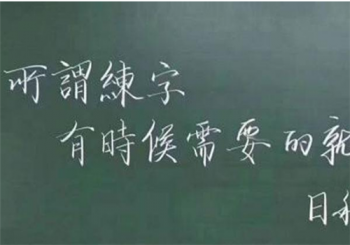 所謂練字
有時候需要的就
日